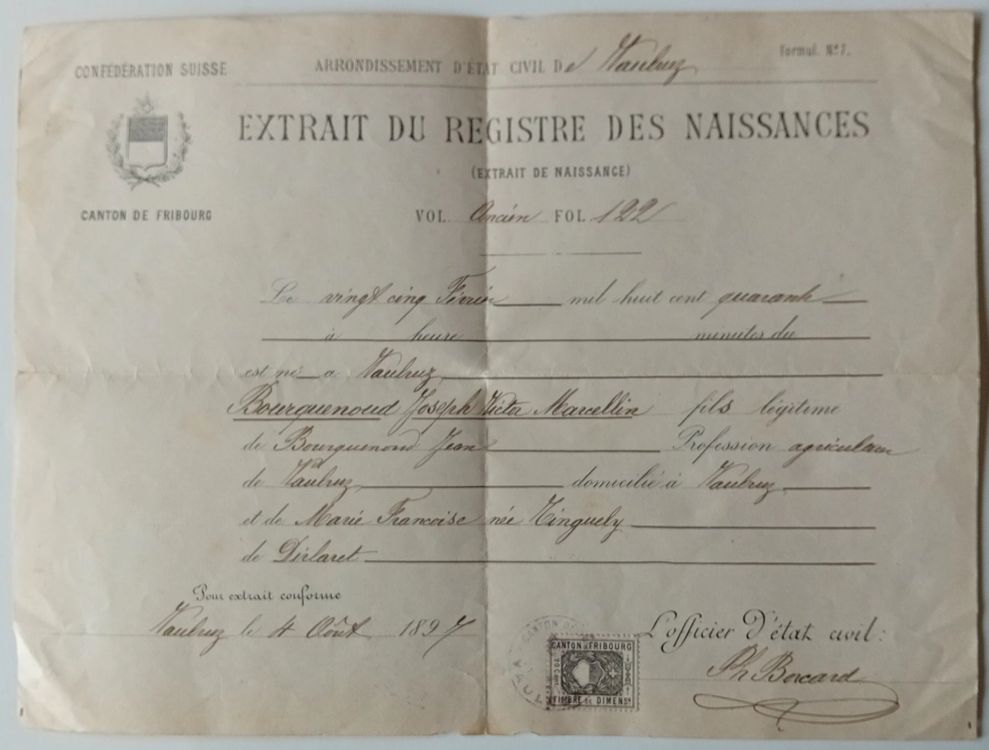 CONFÉDÉRATION SUISSE
ARRONDISSEMENT D'ÉTAT CIVIL De Vaulruz
Formul. Nº 7.
EXTRAIT DU REGISTRE DES NAISSANCES
(EXTRAIT DE NAISSANCE)
CANTON DE FRIBOURG
VOL. Ancien FOL 122
Le vingt cinq Février mil huit cent quarante
à heure minutes du
est né à Vaulruz
Bourquenoud Joseph Victor Marcellin fils légitime
de Bourquenoud Jean Profession agriculteur
de Vaulruz domicilié à Vaulruz
et de Marie Françoise née Tinguely
de Dirlaret
Pour extrait conforme
Vaulruz le 4 Août 1897
L'officier d'état civil:
Ph Borcard
CANTON DE FRIBOURG
TIMBRE DE DIMENSN